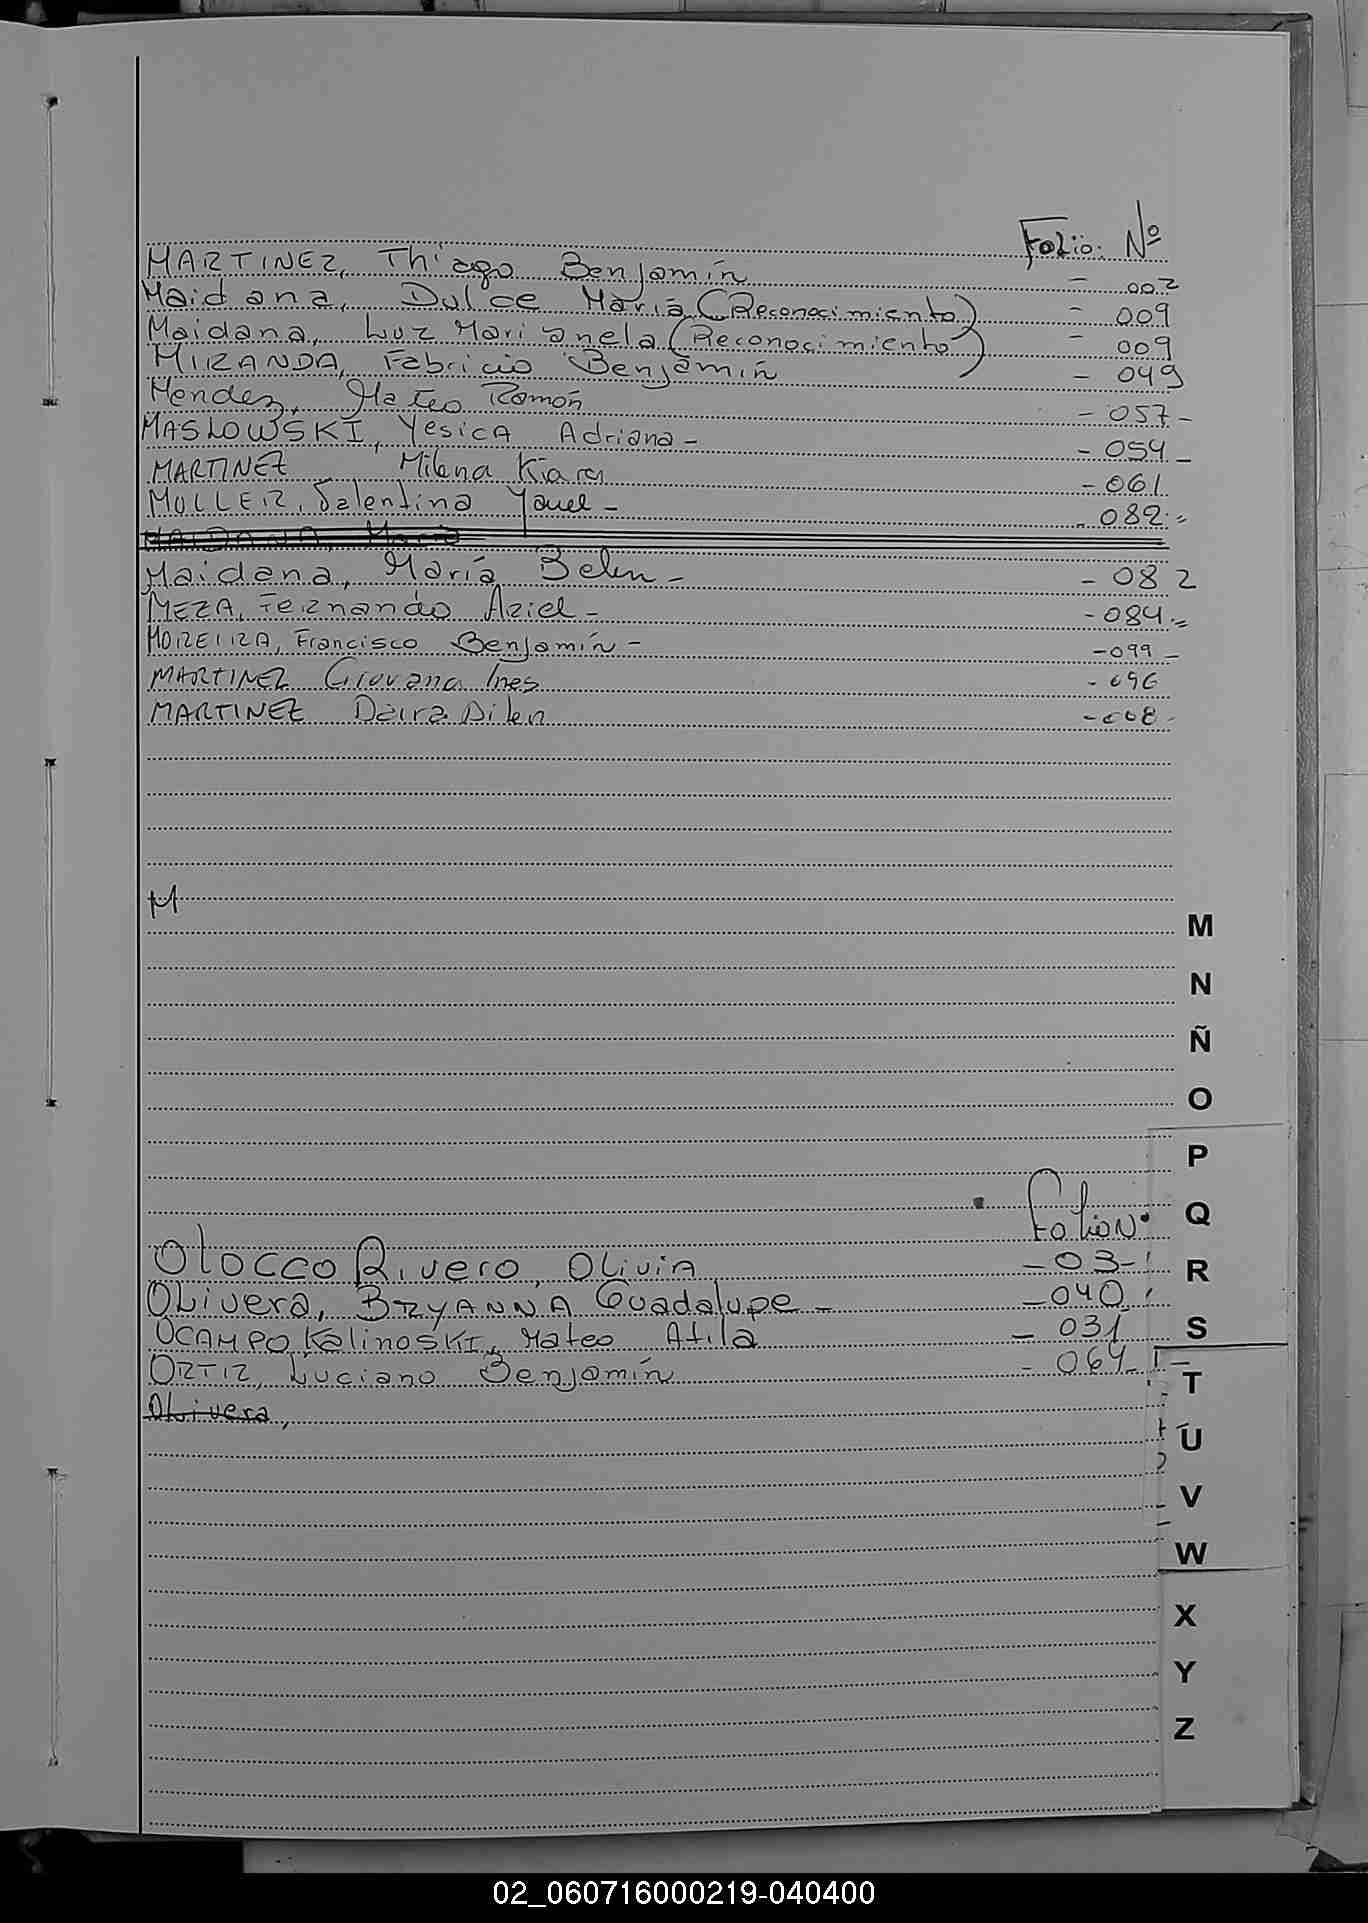 Folio: Nº
MARTINEZ, Thiago Benjamín - 002
Maidana, Dulce María (Reconocimiento) - 009
Maidana, Luz Marianela (Reconocimiento) - 009
MIRANDA, Fabricio Benjamín - 049
Mendez, Mateo Ramón - 057-
MASLOWSKI, Yesica Adriana - - 054-
MARTINEZ Milena Kiara - 061
MULLER, Valentina Yanel - - 082-
MAIDANA, María
Maidana, María Belen - - 082
MEZA, Fernando Aziel - - 084-
MOREIRA, Francisco Benjamín - - 099-
MARTINEZ Giovana Ines - 096
MARTINEZ Daira Ailen - 008-
M
M
N
Ñ
O
P
Folio Nº
Q
Olocco Rivero, Olivia - 03-
R
Olivera, BRYANNA Guadalupe - - 040
OCAMPO Kalinoski, Mateo Atila - 031
S
ORTIZ, Luciano Benjamín - 064-
T
Olivera,
U
V
W
X
Y
Z
02_060716000219-040400